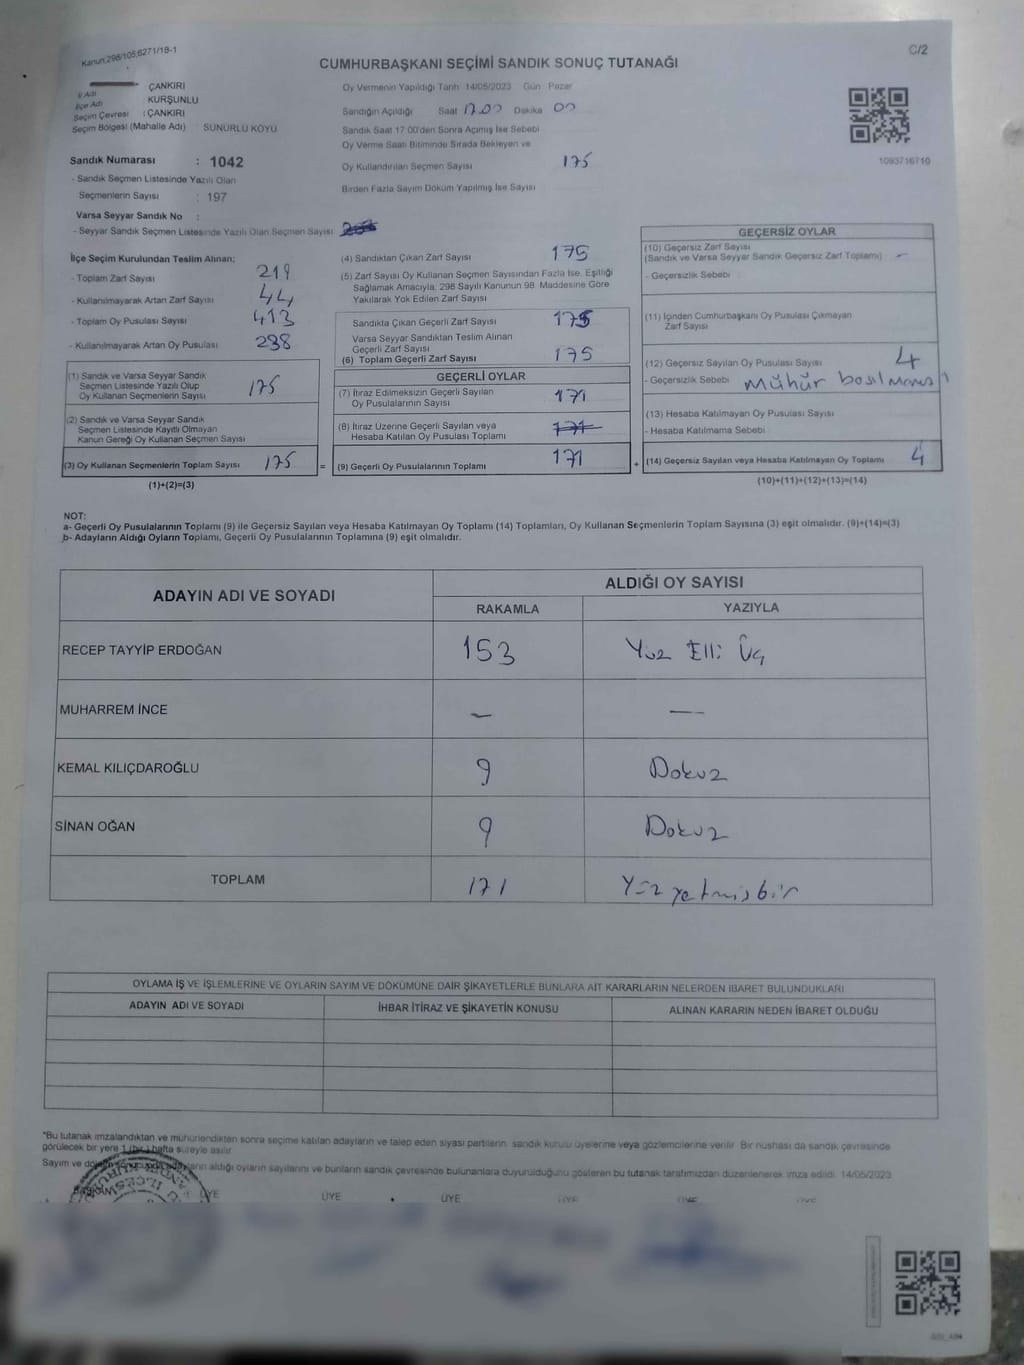 Kanun:298/105;6271/18-1
C/2
CUMHURBAŞKANI SEÇİMİ SANDIK SONUÇ TUTANAĞI
İl Adı ÇANKIRI
İlçe Adı KURŞUNLU
Seçim Çevresi : ÇANKIRI
Seçim Bölgesi (Mahalle Adı) SUNURLU KOYU
Oy Vermenin Yapıldığı Tarih 14/05/2023 Gün: Pazar
Sandığın Açıldığı Saat 17.00 Dakika 00
Sandık Saat 17:00'den Sonra Açılmış İse Sebebi
Oy Verme Saati Bitiminde Sırada Bekleyen ve
Oy Kullandırılan Seçmen Sayısı 175
Birden Fazla Sayım Döküm Yapılmış İse Sayısı
1093716710
Sandık Numarası : 1042
- Sandık Seçmen Listesinde Yazılı Olan
Seçmenlerin Sayısı : 197
Varsa Seyyar Sandık No :
- Seyyar Sandık Seçmen Listesinde Yazılı Olan Seçmen Sayısı
İlçe Seçim Kurulundan Teslim Alınan;
- Toplam Zarf Sayısı 219
- Kullanılmayarak Artan Zarf Sayısı 44
- Toplam Oy Pusulası Sayısı 413
- Kullanılmayarak Artan Oy Pusulası 238
(1) Sandık ve Varsa Seyyar Sandık
Seçmen Listesinde Yazılı Olup
Oy Kullanan Seçmenlerin Sayısı 175
(2) Sandık ve Varsa Seyyar Sandık
Seçmen Listesinde Kayıtlı Olmayan
Kanun Gereği Oy Kullanan Seçmen Sayısı
(3) Oy Kullanan Seçmenlerin Toplam Sayısı 175
(1)+(2)=(3)
(4) Sandıktan Çıkan Zarf Sayısı 175
(5) Zarf Sayısı Oy Kullanan Seçmen Sayısından Fazla İse, Eşitliği
Sağlamak Amacıyla, 298 Sayılı Kanunun 98. Maddesine Göre
Yakılarak Yok Edilen Zarf Sayısı
Sandıkta Çıkan Geçerli Zarf Sayısı 175
Varsa Seyyar Sandıktan Teslim Alınan
Geçerli Zarf Sayısı
(6) Toplam Geçerli Zarf Sayısı 175
GEÇERLİ OYLAR
(7) İtiraz Edilmeksizin Geçerli Sayılan
Oy Pusulalarının Sayısı 171
(8) İtiraz Üzerine Geçerli Sayılan veya
Hesaba Katılan Oy Pusulası Toplamı 171
= (9) Geçerli Oy Pusulalarının Toplamı 171 +
GEÇERSİZ OYLAR
(10) Geçersiz Zarf Sayısı
(Sandık ve Varsa Seyyar Sandık Geçersiz Zarf Toplamı) -
- Geçersizlik Sebebi :
(11) İçinden Cumhurbaşkanı Oy Pusulası Çıkmayan
Zarf Sayısı
(12) Geçersiz Sayılan Oy Pusulası Sayısı 4
- Geçersizlik Sebebi mühür basılmamış
(13) Hesaba Katılmayan Oy Pusulası Sayısı
- Hesaba Katılmama Sebebi
(14) Geçersiz Sayılan veya Hesaba Katılmayan Oy Toplamı 4
(10)+(11)+(12)+(13)=(14)
NOT:
a- Geçerli Oy Pusulalarının Toplamı (9) ile Geçersiz Sayılan veya Hesaba Katılmayan Oy Toplamı (14) Toplamları, Oy Kullanan Seçmenlerin Toplam Sayısına (3) eşit olmalıdır. (9)+(14)=(3)
b- Adayların Aldığı Oyların Toplamı, Geçerli Oy Pusulalarının Toplamına (9) eşit olmalıdır.
ADAYIN ADI VE SOYADI
ALDIĞI OY SAYISI
RAKAMLA YAZIYLA
RECEP TAYYİP ERDOĞAN 153 Yüz Elli Üç
MUHARREM İNCE - -
KEMAL KILIÇDAROĞLU 9 Dokuz
SİNAN OĞAN 9 Dokuz
TOPLAM 171 Yüz yetmiş bir
OYLAMA İŞ VE İŞLEMLERİNE VE OYLARIN SAYIM VE DÖKÜMÜNE DAİR ŞİKAYETLERLE BUNLARA AİT KARARLARIN NELERDEN İBARET BULUNDUKLARI
ADAYIN ADI VE SOYADI İHBAR İTİRAZ VE ŞİKAYETİN KONUSU ALINAN KARARIN NEDEN İBARET OLDUĞU
*Bu tutanak imzalandıktan ve mühürlendikten sonra seçime katılan adayların ve talep eden siyasi partilerin sandık kurulu üyelerine veya gözlemcilerine verilir. Bir nüshası da sandık çevresinde
görülecek bir yere 1 (bir) hafta süreyle asılır.
Sayım ve döküm sonucunda adayların aldığı oyların sayılarını ve bunların sandık çevresinde bulunanlara duyurulduğunu gösteren bu tutanak tarafımızdan düzenlenerek imza edildi. 14/05/2023
BAŞKAN ÜYE ÜYE ÜYE ÜYE ÜYE ÜYE